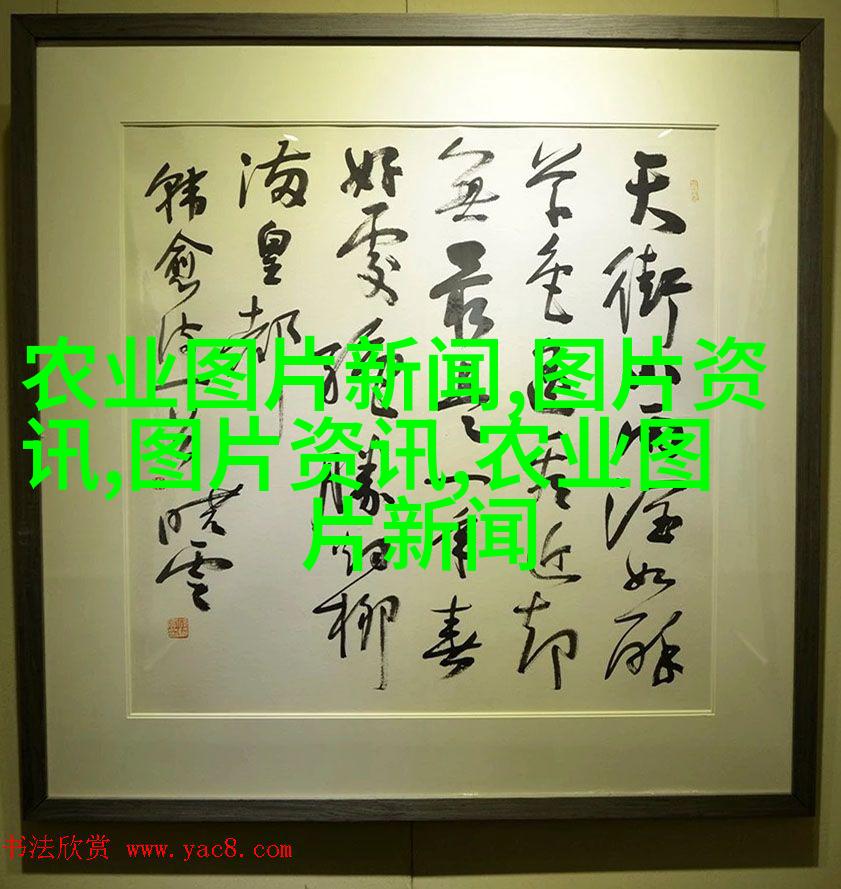 农业图片新闻,图片资
讯,图片资讯,农业图
片新闻
天街小雨润如酥
草色遥看近却
無最是一年春
好處绝勝烟柳
满皇都
韩愈诗一首 晓雲
书法欣赏 www.yac8.com